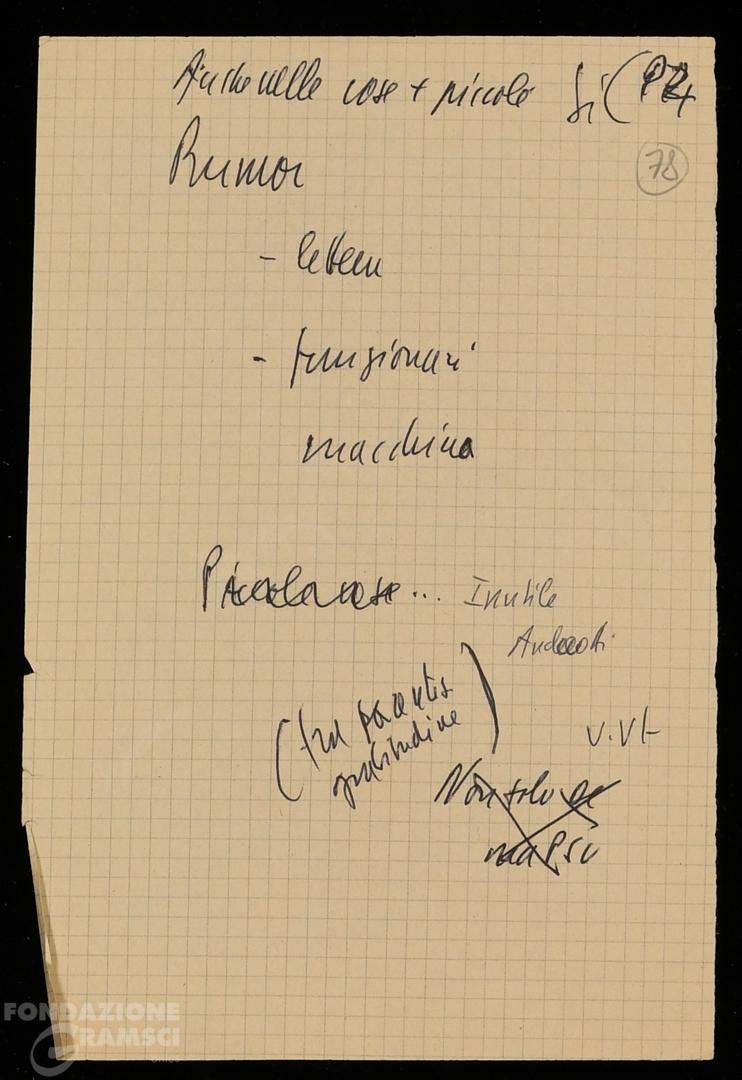 Anche nelle cose + piccole Si (
78
Rumor
- lettera
- funzionari
macchina
Piccole cose... Inutile
Andreotti
(tra parentesi
gratitudine)
V. Vt
Non solo DC
ma PSU
FONDAZIONE
GRAMSCI
ONLUS